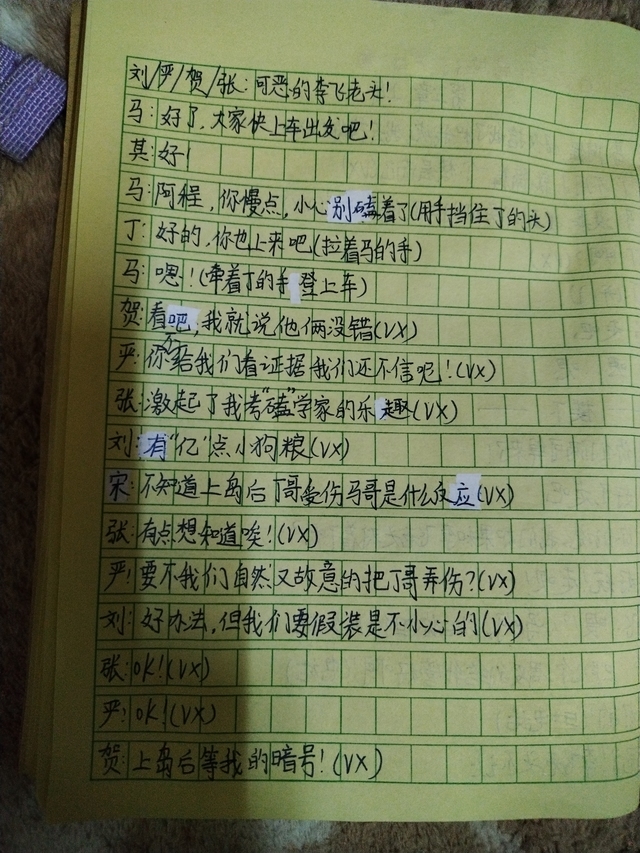 刘/严/贺/张:可恶的李飞老头!
马:好了,大家快上车出发吧!
其:好!
马:阿程,你慢点,小心别磕着了(用手挡住丁的头)
丁:好的,你也上来吧(拉着马的手)
马:嗯!(牵着丁的手登上车)
贺:看吧,我就说他俩没错(VX)
严:你不给我们看证据我们还不信呢!(VX)
张:激起了我考“磕”学家的乐趣(VX)
刘:有“亿”点小狗粮(VX)
宋:不知道上岛后丁哥受伤马哥是什么反应(VX)
张:有点想知道唉!(VX)
严:要不我们自然又故意的把丁哥弄伤?(VX)
刘:好办法,但我们要假装是不小心的(VX)
张:OK!(VX)
严:OK!(VX)
贺:上岛后等我的暗号!(VX)